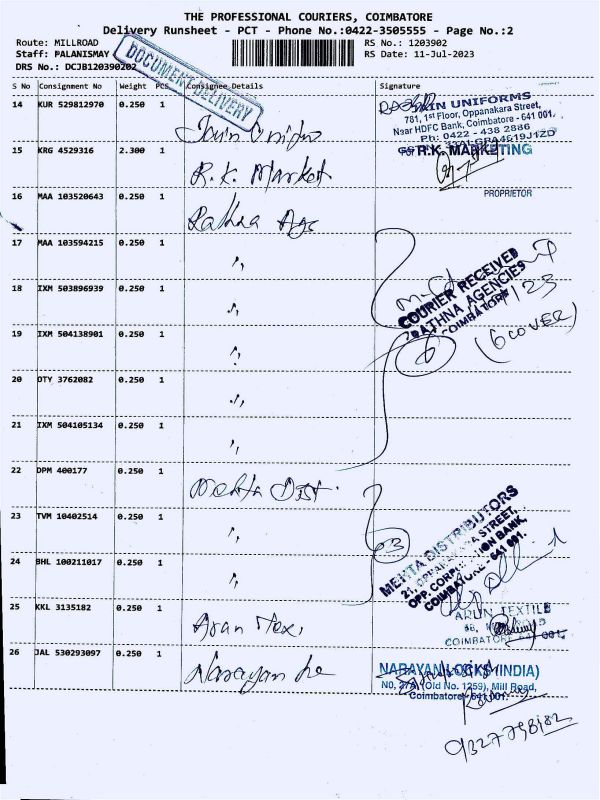 THE PROFESSIONAL COURIERS, COIMBATORE
Delivery Runsheet - PCT - Phone No.:0422-3505555 - Page No.:2
Route: MILLROAD
Staff: PALANISMAY
DRS No.: DCJB120390202
RS No.: 1203902
RS Date: 11-Jul-2023
DOCUMENT DELIVERY
S No Consignment No Weight PCS Consignee Details Signature
14 KUR 529812970 0.250 1
UNIFORMS
781, 1st Floor, Oppanakara Street,
Near HDFC Bank, Coimbatore - 641 001.
Ph: 0422 - 438 2886
15 KRG 4529316 2.300 1 R.K. Market
For R.K. MARKETING
PROPRIETOR
16 MAA 103520643 0.250 1 Rathna Ags
17 MAA 103594215 0.250 1 ,,
18 IXM 503896939 0.250 1 ,,
COURIER RECEIVED
RATHNA AGENCIES
COIMBATORE
19 IXM 504138901 0.250 1 ,,
6
(6 COVER)
20 OTY 3762082 0.250 1 ,,
21 IXM 504105134 0.250 1 ,,
22 DPM 400177 0.250 1 Mehta Dist.
23 TVM 10402514 0.250 1 ,,
03
MEHTA DISTRIBUTORS
21, OPPANAKARA STREET,
OPP. CORPORATION BANK,
COIMBATORE - 641 001.
24 BHL 100211017 0.250 1 ,,
25 KKL 3135182 0.250 1 Arun Tex,
ARUN TEXTILE
COIMBATORE 641 001.
26 JAL 530293097 0.250 1 Narayan
NARAYAN LOCKS (INDIA)
NO, 27A, (Old No. 1259), Mill Road,
Coimbatore - 641 001.
9327758182